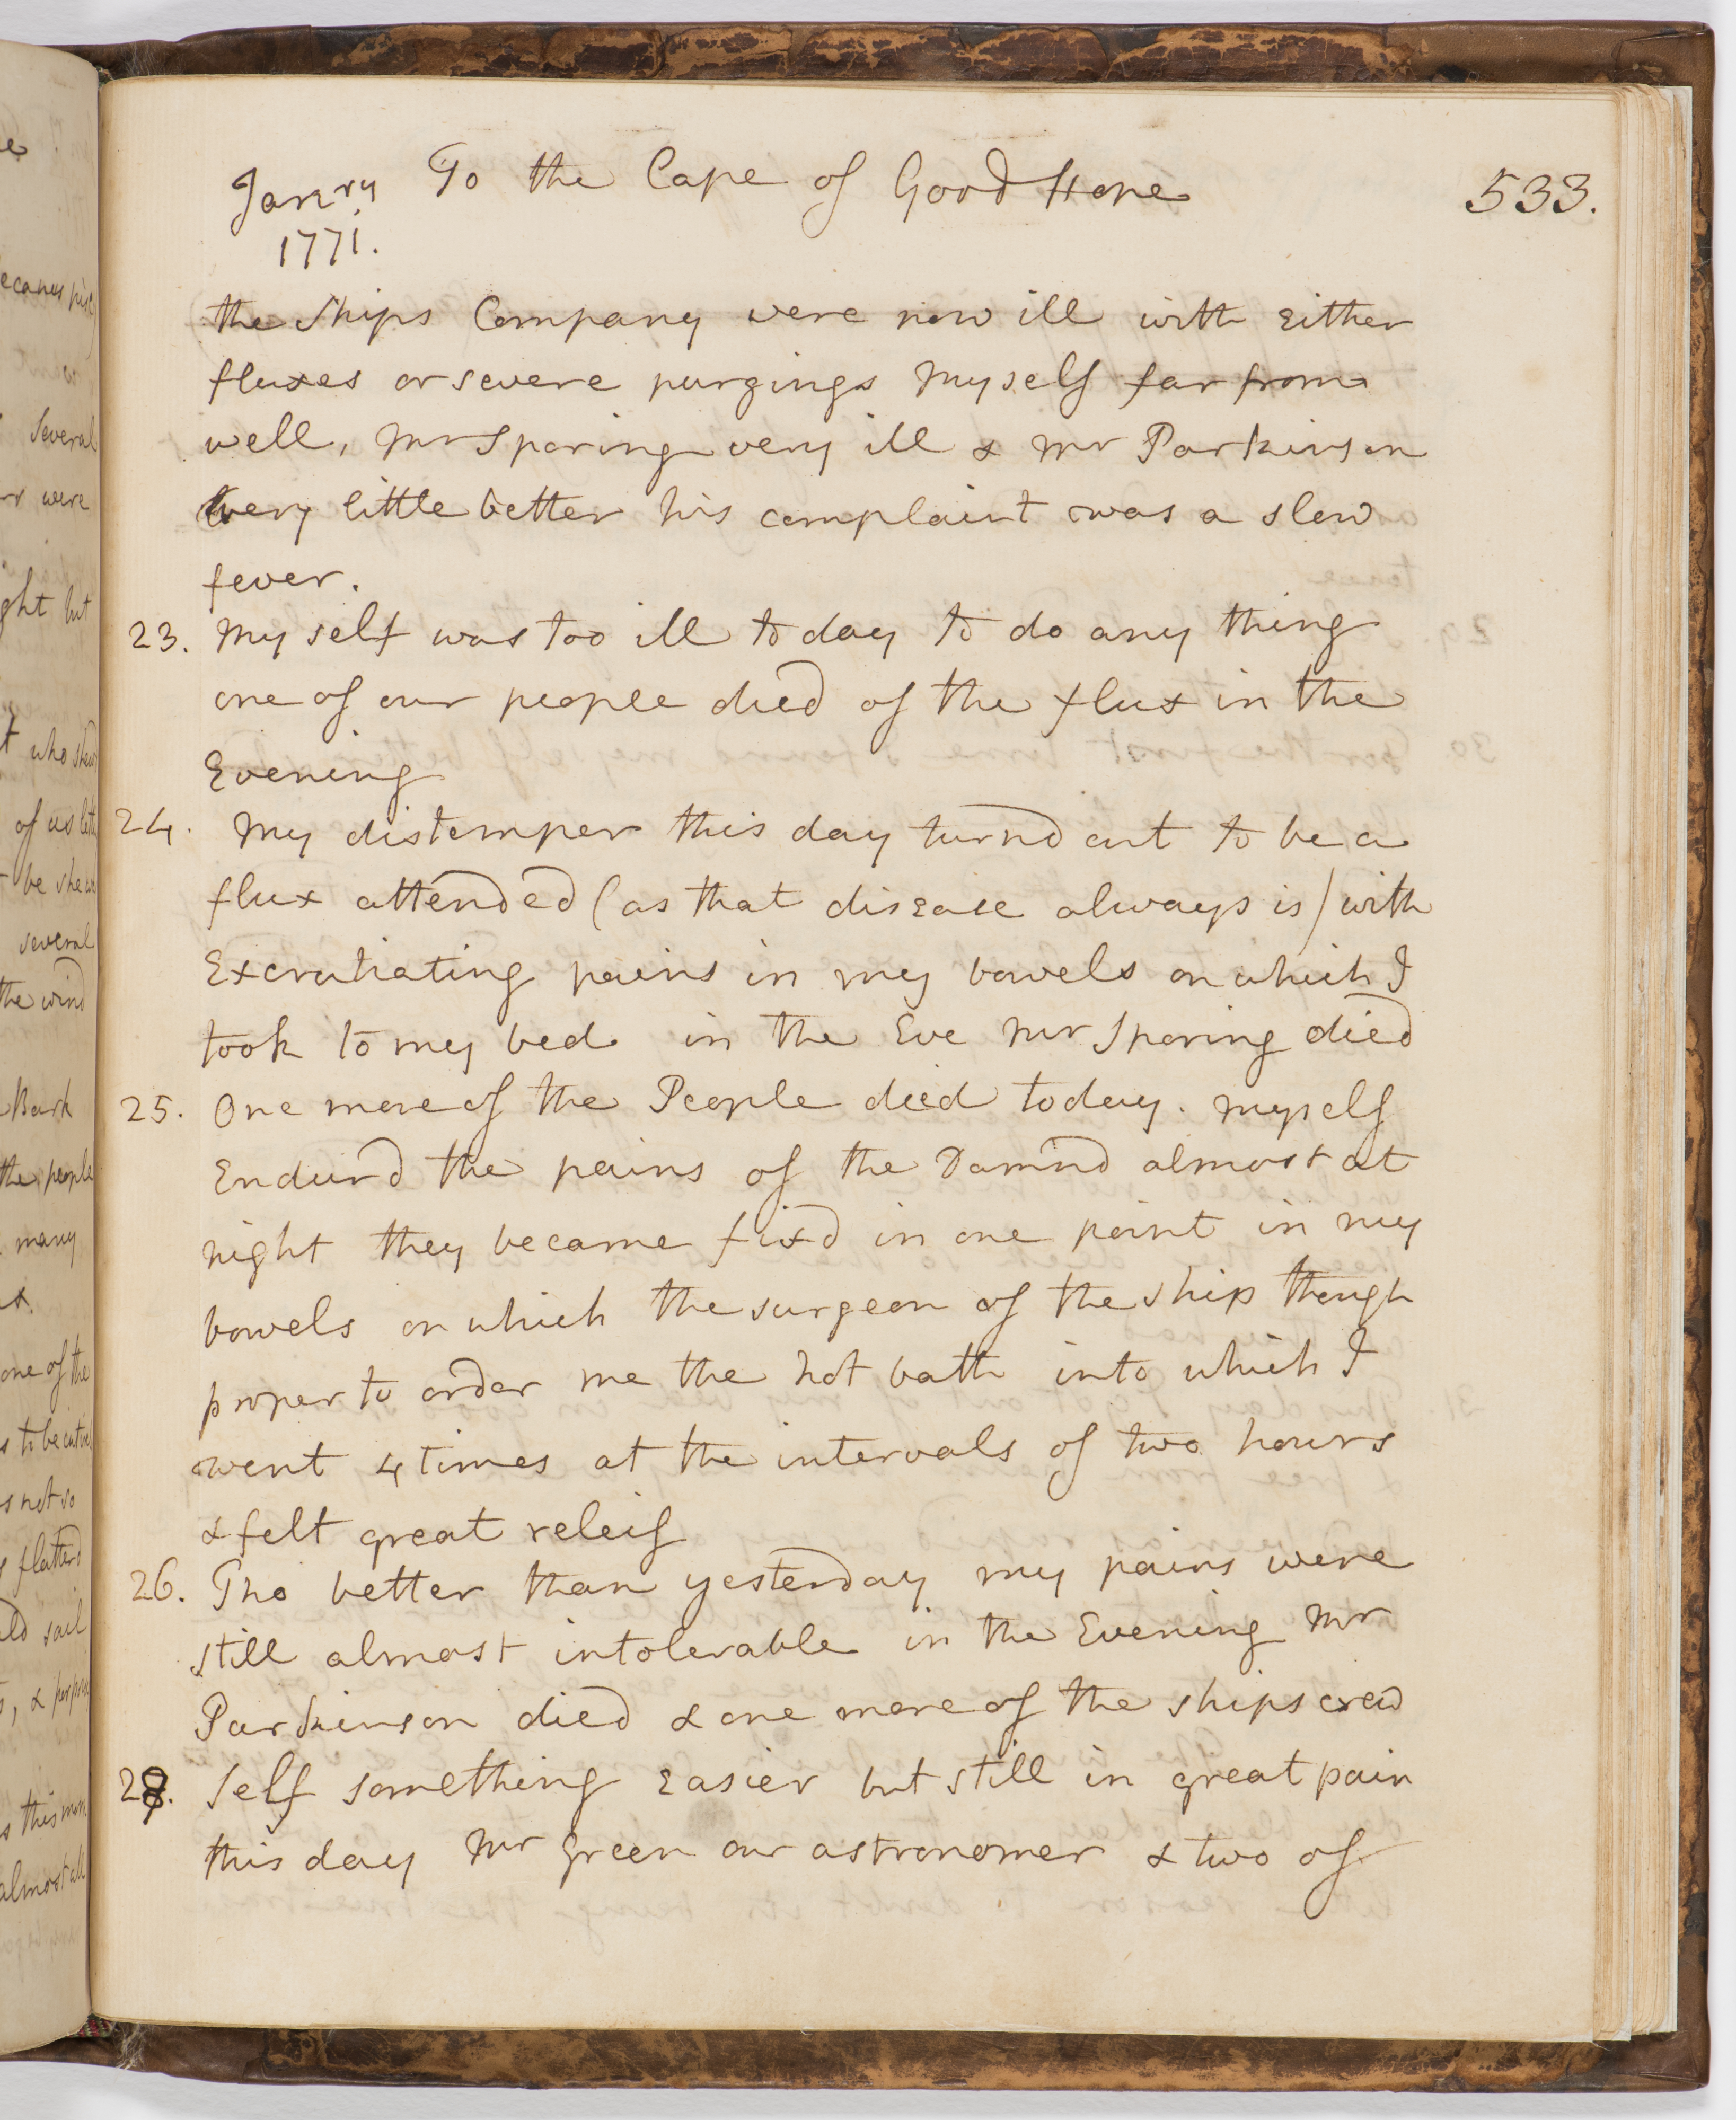 Janry To the Cape of Good Hope 533.
1771.
the Ships Company were now ill with Either
fluxes or severe purgings Myself far from
well, Mr Sporing very ill & Mr Parkinson
very little better his complaint was a slow
fever.
23. Myself was too ill today to do any thing
one of our people died of the flux in the
Evening
24. My distemper this day turnd out to be a
flux attended (as that disease always is) with
Excrutiating pains in my bowels on which I
took to my bed. in the Eve Mr Sporing died
25. One more of the People died today. Myself
Endurd the pains of the Damnd almost at
night they became fixd in one point in my
bowels on which the surgeon of the ship though
proper to order me the hot bath into which I
went 4 times at the intervals of two hours
& felt great releif
26. Tho better than yesterday my pains were
still almost intolerable in the Evening Mr
Parkinson died & one more of the ships crew
28. Self something Easier but still in great pain
this day Mr Green our astronomer & two of
several
were
ght but
of us
several
the wind
Bark
the people
many
one of the
s not so
flatterd
sail
almost all